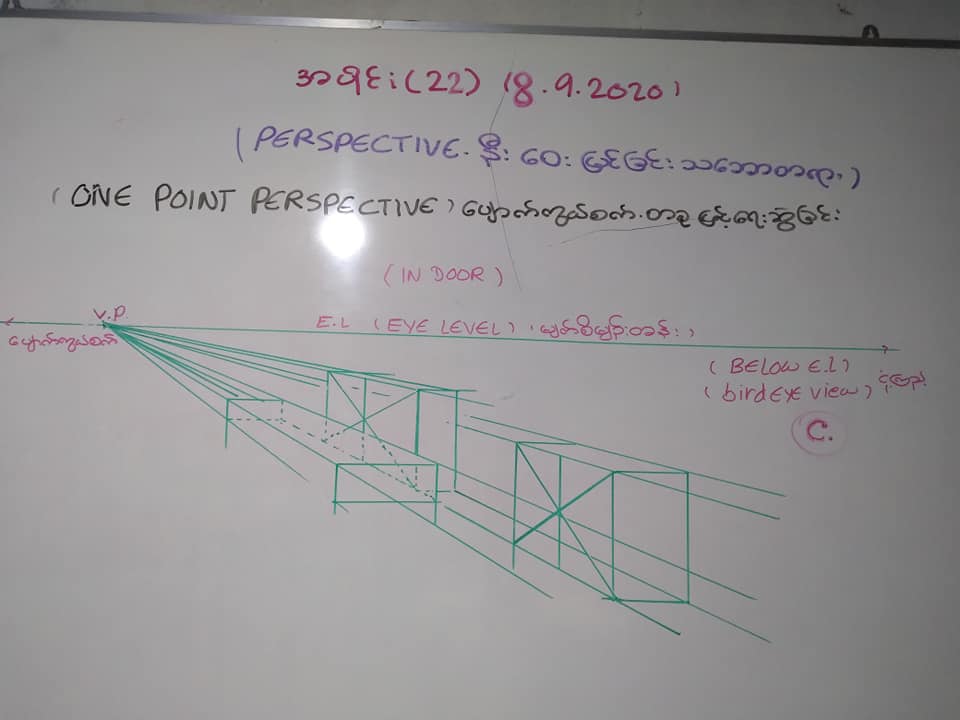 အရှင်း(22) (8.9.2020)
(PERSPECTIVE. နီး ဝေး မြင်ခြင်း သဘောတရား)
(ONE POINT PERSPECTIVE) ပျောက်ကွယ်စက်.တခု ဖြင့်ရေးဆွဲခြင်း
(IN DOOR)
V.P. E.L (EYE LEVEL), မျက်စိမျဉ်းတန်း)
ပျောက်ကွယ်စက်
(BELOW E.L)
(bird EYE view)
C.